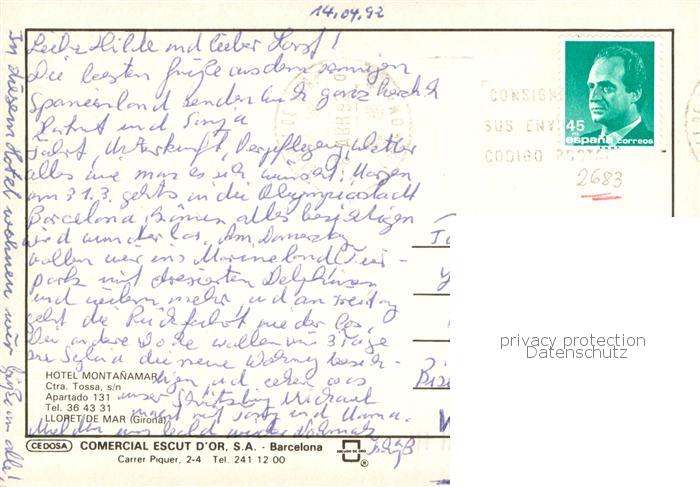 14.04.92
Liebe Hilde und lieber Horst!
Die besten Grüße aus dem sonnigen
Spanienland senden Euch ganz herzlich
und Sonja
Fahrt, Unterkunft, Verpflegung, Wetter
alles wie man es sich wünscht. Morgen
am geht's in die Olympiastadt
Barcelona, alles besichtigen
wird wunderbar. Am Donnerstag
wollen wir ins Marineland Tier-
park mit dressierten Delphinen
und vielem mehr, und am Freitag
geht die Rückfahrt wieder los.
Die andere Woche wollen wir 3 Tage
die neue Wohnung besich-
tigen und sehen was
unser Michael
macht mit und Mama.
Melden uns bald wieder
In diesem Hotel wohnen wir Grüße an alle!
CONSIGNE
SUS ENV
CODIGO POSTAL
45
PTA
españa correos
2683
HOTEL MONTAÑAMAR
Ctra. Tossa, s/n
Apartado 131
Tel. 36 43 31
LLORET DE MAR (Girona)
CEDOSA
COMERCIAL ESCUT D'OR, S.A. - Barcelona
Carrer Piquer, 2-4 Tel. 241 12 00
ESCUDO DE ORO
®
privacy protection
Datenschutz